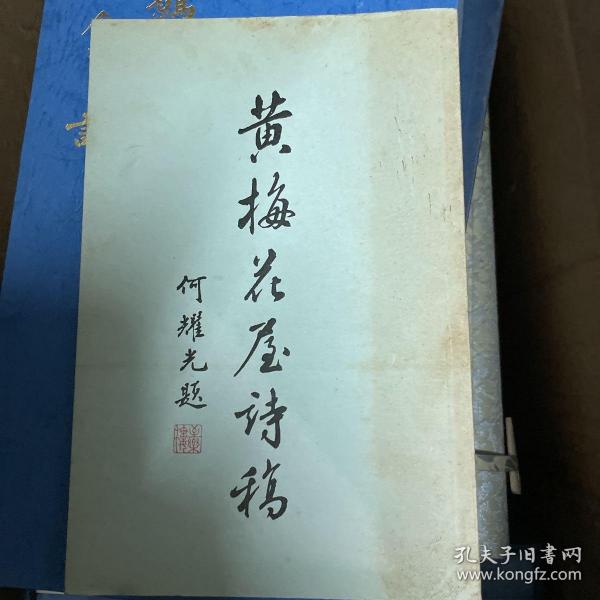 黄梅花屋詩稿
何耀光题
孔夫子旧书网
www.kongfz.com